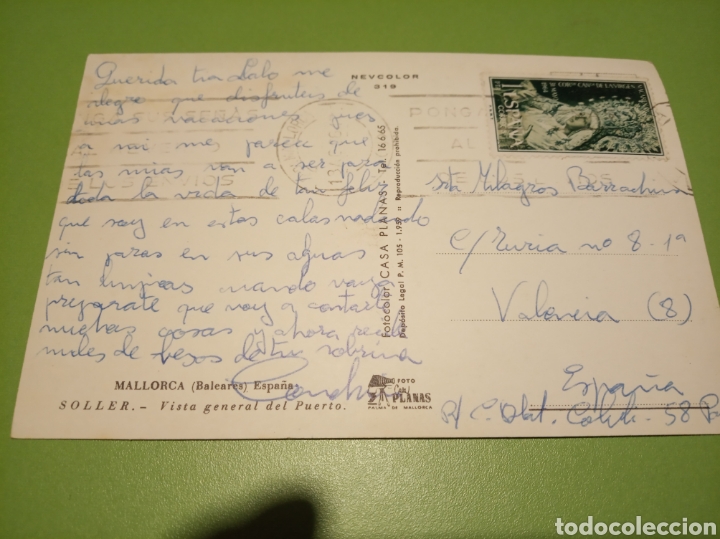 Querida tia Lalo me
alegro que disfruteis de
unas vacaciones pues
a mi me parece que
las mias van a ser para
toda la vida de tan feliz
que soy en estas calas nadando
sin parar en sus aguas
tan limpias cuando vaya
preparate que voy a contarte
muchas cosas y ahora recibe
miles de besos de tu sobrina
Conchi
MALLORCA (Baleares) España
SOLLER. - Vista general del Puerto.
NEVCOLOR
919
Fotocolor CASA PLANAS Tel. 16665
Depósito Legal P. M. 105 - 1.959 :: Reproducción prohibida
FOTO
Casa
PLANAS
PALMA DE MALLORCA
ESPAÑA
PONGA
AL
Sta Milagros Barrachina
C/ Turia nº 8-1ª
Valencia (8)
España
58
todocoleccion
todocoleccion.net